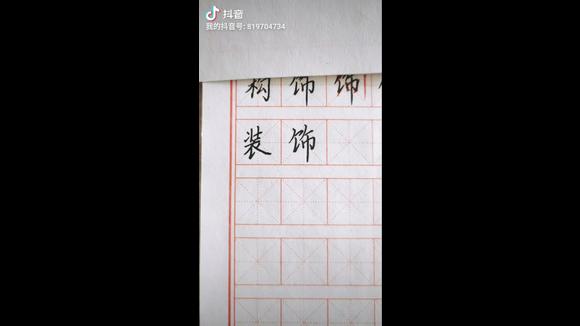 抖音
我的抖音号: 819704734
构饰饰
装饰